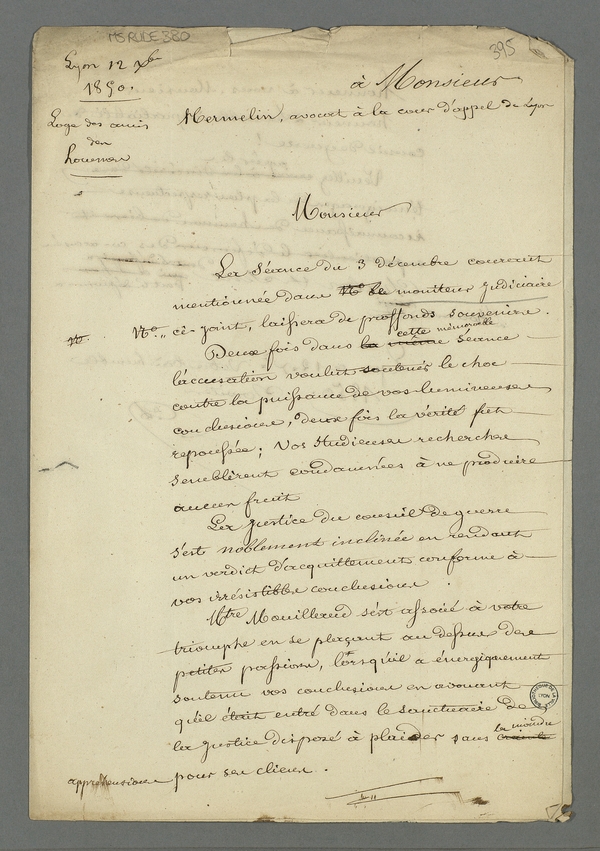 MS RUDE 380
395
Lyon 12 Xbre
1850.
à Monsieur
Mermelin, avocat à la cour d'appel de Lyon
Loge des amis
des
hommes
Monsieur
La Séance du 3 décembre courant
mentionnée dans N° le moniteur judiciaire
N°. ci-joint, laissera de profonds souvenirs.
Deux fois dans la même cette mémorable séance
l'accusation voulut soutenir le choc
contre la puissance de vos lumineuses
conclusions, deux fois la vérité fut
repoussée; Vos studieuses recherches
semblèrent condamnées à ne produire
aucun fruit
La justice du conseil de guerre
s'est noblement inclinée en rendant
un verdict d'acquittement conforme à
vos irrésistibles conclusions.
Mtre Mouillaud s'est associé à votre
triomphe en se plaçant au dessus des
petites passions, lorsqu'il a énergiquement
soutenu vos conclusions en avouant
qu'il était entré dans le sanctuaire de
la justice disposé à plaider sans crainte la moindre
appréhension pour ses clients.